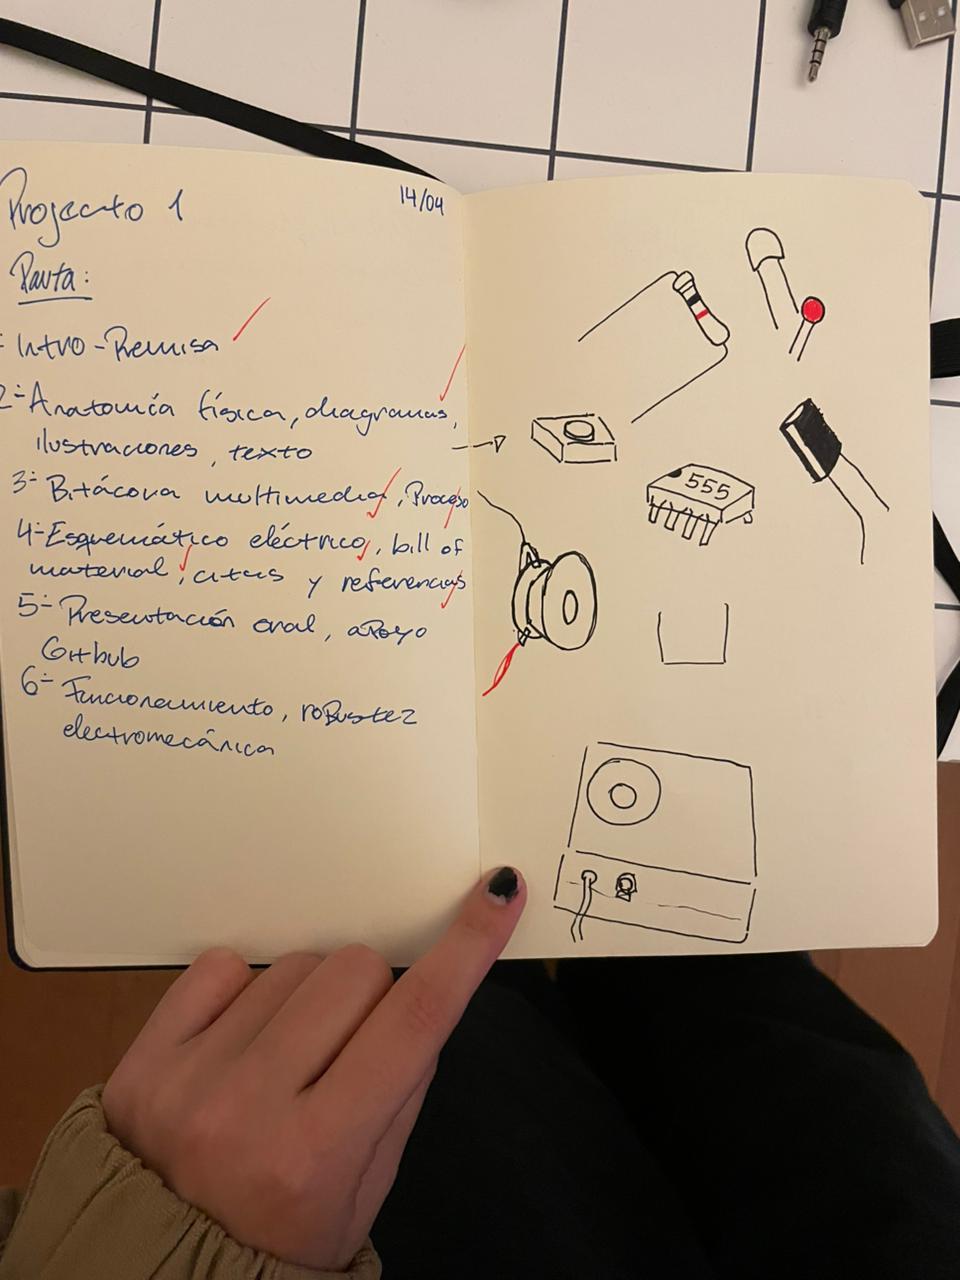 Proyecto 1
14/04
Pauta:
- Intro - Premisa
2- Anatomía física, diagramas,
ilustraciones, texto
3- Bitácora multimedia, Proceso
4- Esquemático eléctrico, bill of
material, citas y referencias
5- Presentación oral, apoyo
Github
6- Funcionamiento, robustez
electromecánica
555